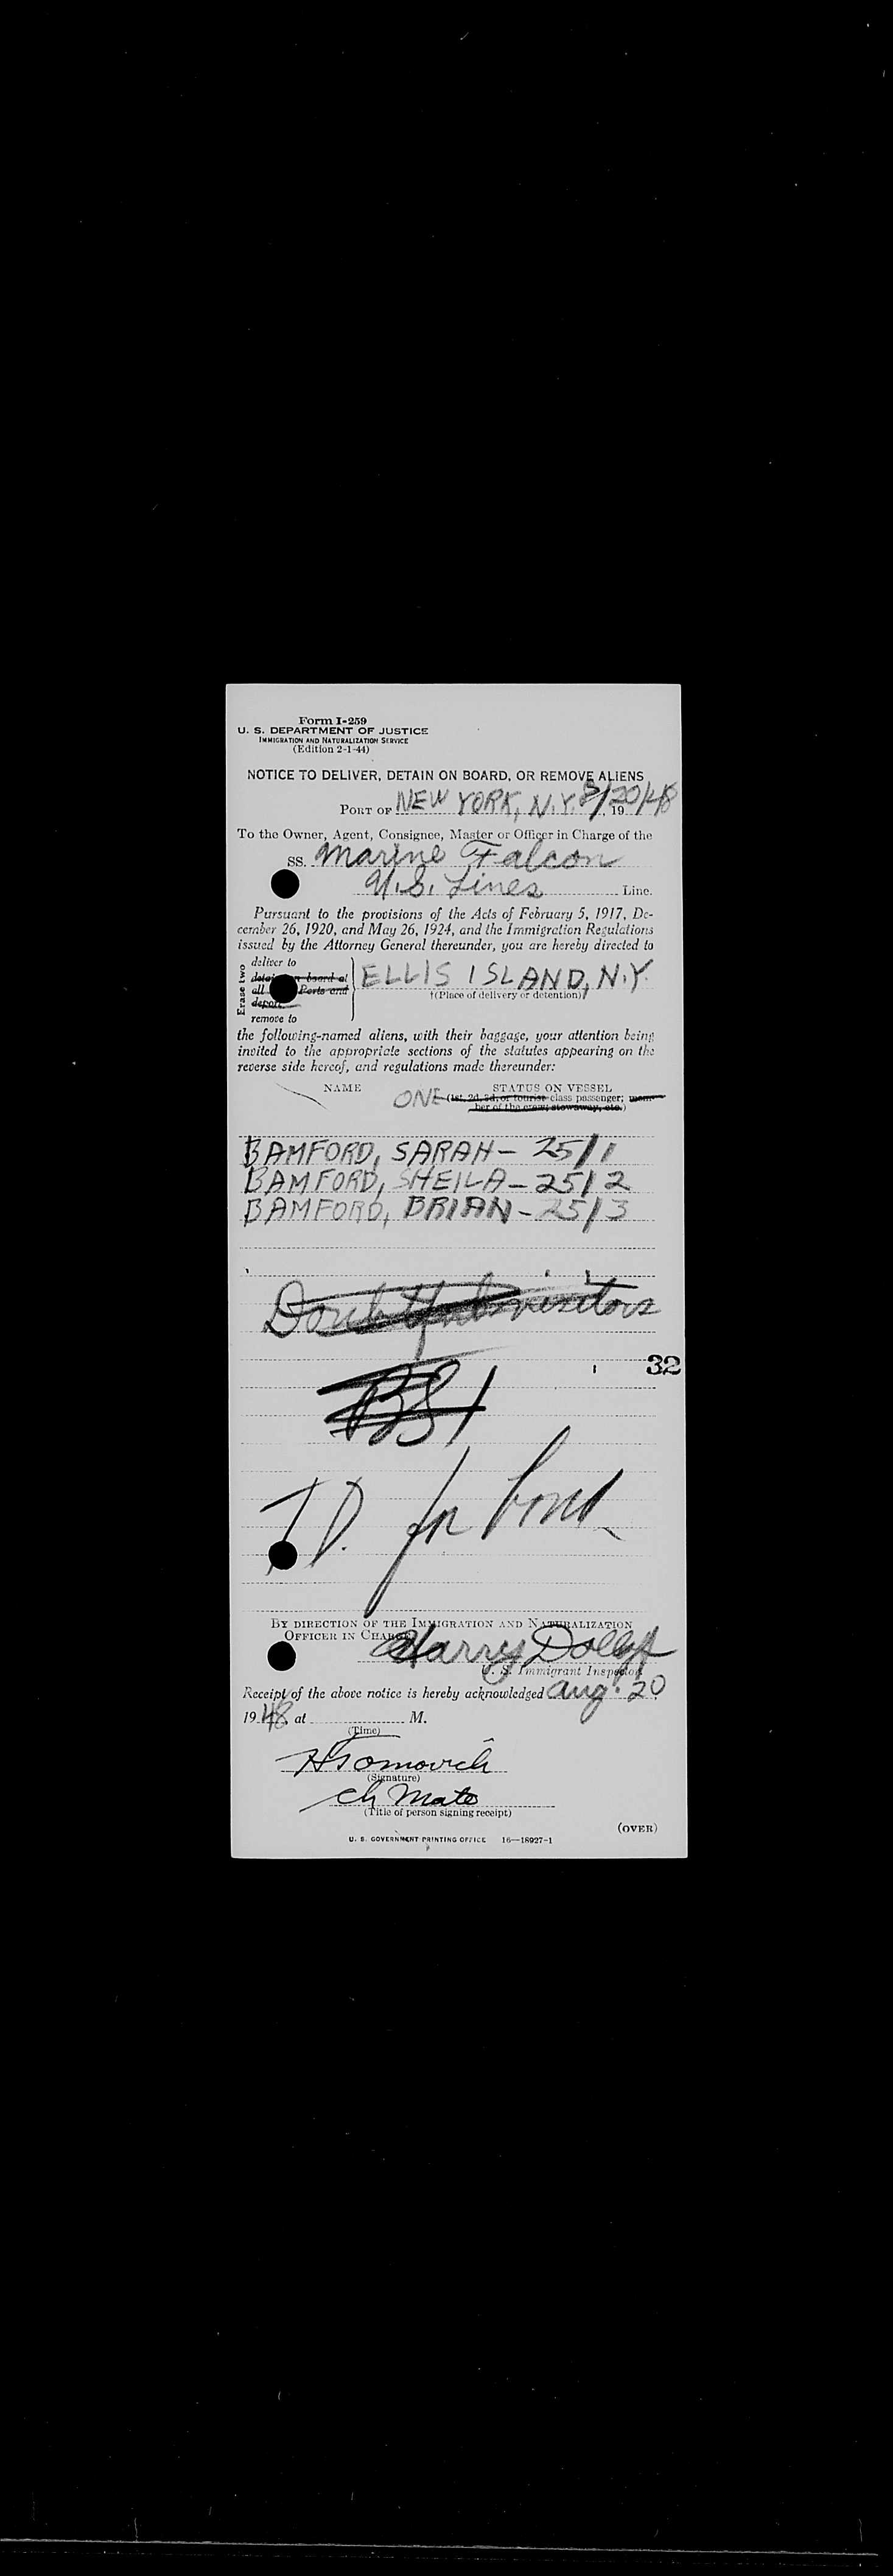 Form I-259
U. S. DEPARTMENT OF JUSTICE
IMMIGRATION AND NATURALIZATION SERVICE
(Edition 2-1-44)
NOTICE TO DELIVER, DETAIN ON BOARD, OR REMOVE ALIENS
PORT OF NEW YORK, N.Y. 8/20/48, 19
To the Owner, Agent, Consignee, Master or Officer in Charge of the
SS. Marine Falcon
U.S. Lines Line.
Pursuant to the provisions of the Acts of February 5, 1917, De-
cember 26, 1920, and May 26, 1924, and the Immigration Regulations
issued by the Attorney General thereunder, you are hereby directed to
Erase two
deliver to
detain on board at
all Ports and
deport
remove to
ELLIS ISLAND, N.Y.
†(Place of delivery or detention)
the following-named aliens, with their baggage, your attention being
invited to the appropriate sections of the statutes appearing on the
reverse side hereof, and regulations made thereunder:
NAME STATUS ON VESSEL
ONE (1st, 2d, 3d, or tourist class passenger; mem-
ber of the crew; stowaway, etc.)
BAMFORD, SARAH - 25/1
BAMFORD, SHEILA - 25/2
BAMFORD, BRIAN - 25/3
Doubtful visitors
32
T.D. for bond
BY DIRECTION OF THE IMMIGRATION AND NATURALIZATION
OFFICER IN CHARGE
Harry
U. S. Immigrant Inspector
Receipt of the above notice is hereby acknowledged Aug. 20
1948, at M.
(Time)
(Signature)
Ch Mate
(Title of person signing receipt)
(OVER)
U. S. GOVERNMENT PRINTING OFFICE 16—18927-1